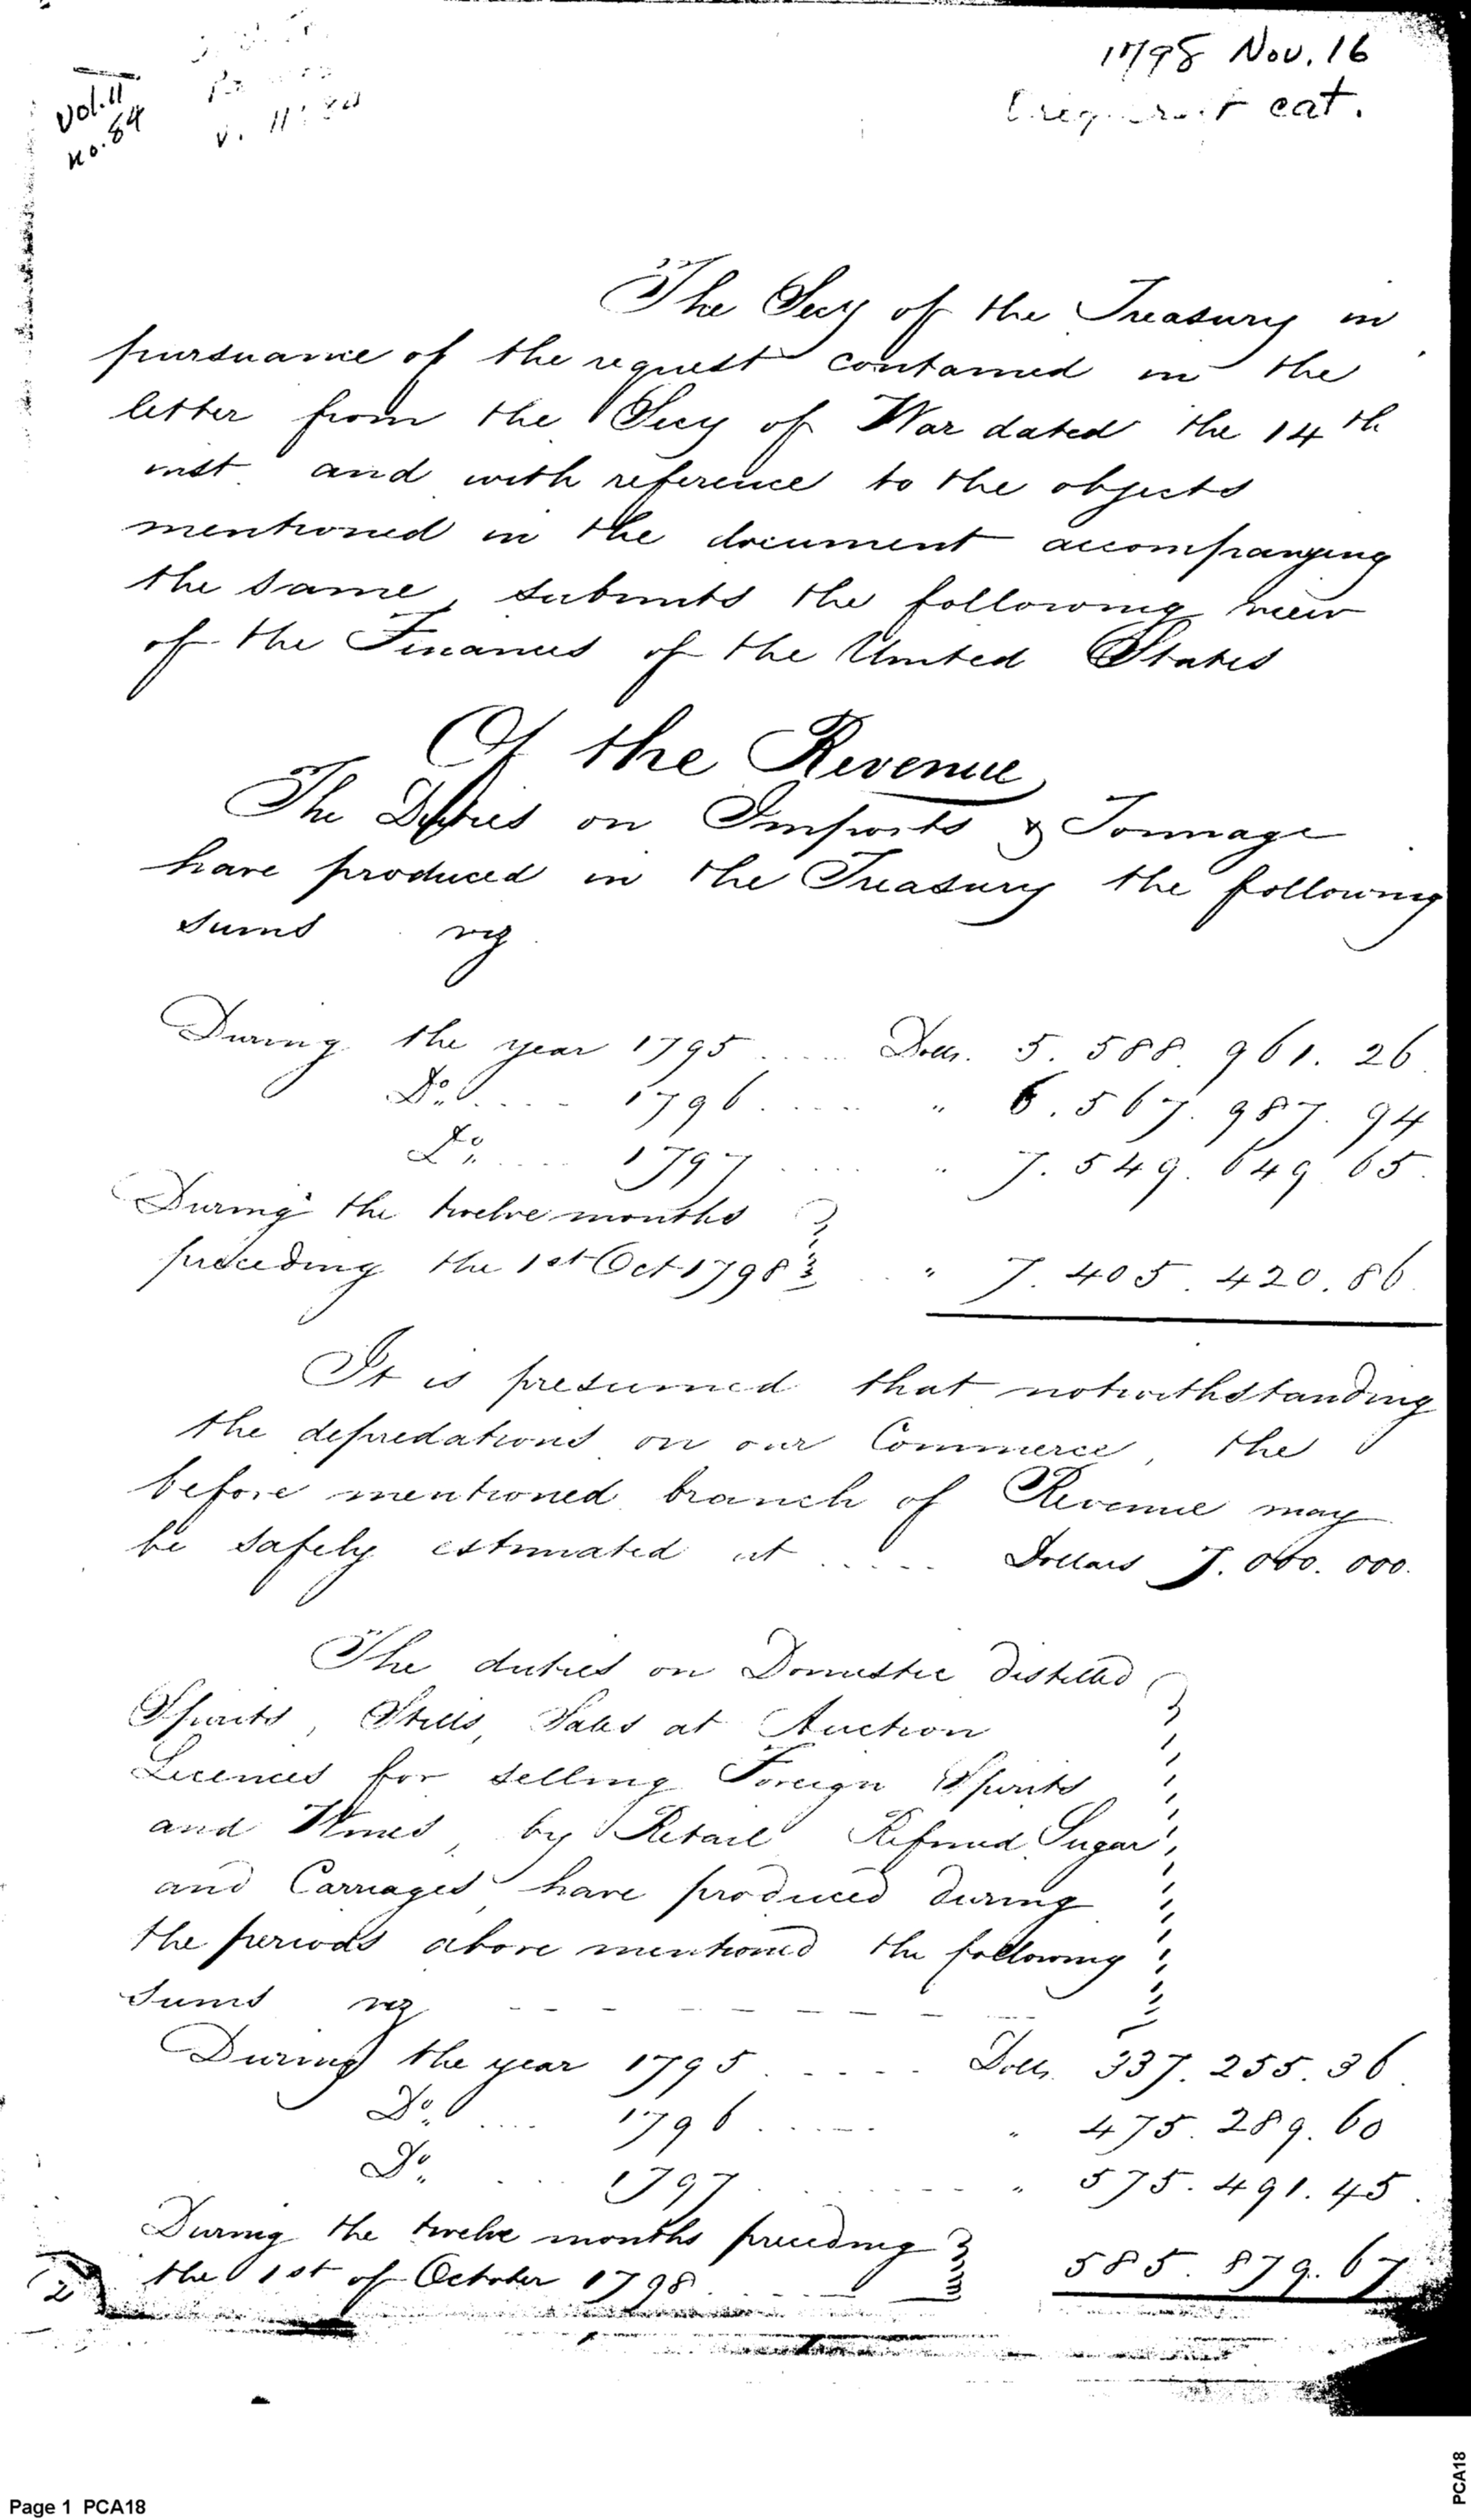 Vol. 11
no. 84
v. 11:84
1798 Nov. 16
cat.
The Secy of the Treasury in
pursuance of the request contained in the
letter from the Secy of War dated the 14th
inst. and with reference to the objects
mentioned in the document accompanying
the same, submits the following view
of the Finances of the United States
Of the Revenue
The Duties on Imports & Tonnage
have produced in the Treasury the following
sums viz
During the year 1795 ..... Dolls. 5.588.961.26
Do. .... 1796 ..... " 6.567.987.94
Do. .... 1797 .... " 7.549.649.65
During the twelve months
preceding the 1st Oct 1798 .. " 7.405.420.86
It is presumed that notwithstanding
the depredations on our Commerce, the
before mentioned branch of Revenue may
be safely estimated at ..... Dollars 7.000.000.
The duties on Domestic distilled
Spirits, Stills, Sales at Auction
Licences for selling Foreign Spirits
and Wines, by Retail Refined Sugar
and Carriages, have produced during
the periods above mentioned the following
sums viz - - - - - - -
During the year 1795 ..... Dolls. 337.255.36
Do. .... 1796 ..... " 475.289.60
Do. ... 1797 ...... " 575.491.45
During the twelve months preceding
the 1st of October 1798 .... 585.879.67
2
Page 1 PCA18
PCA18